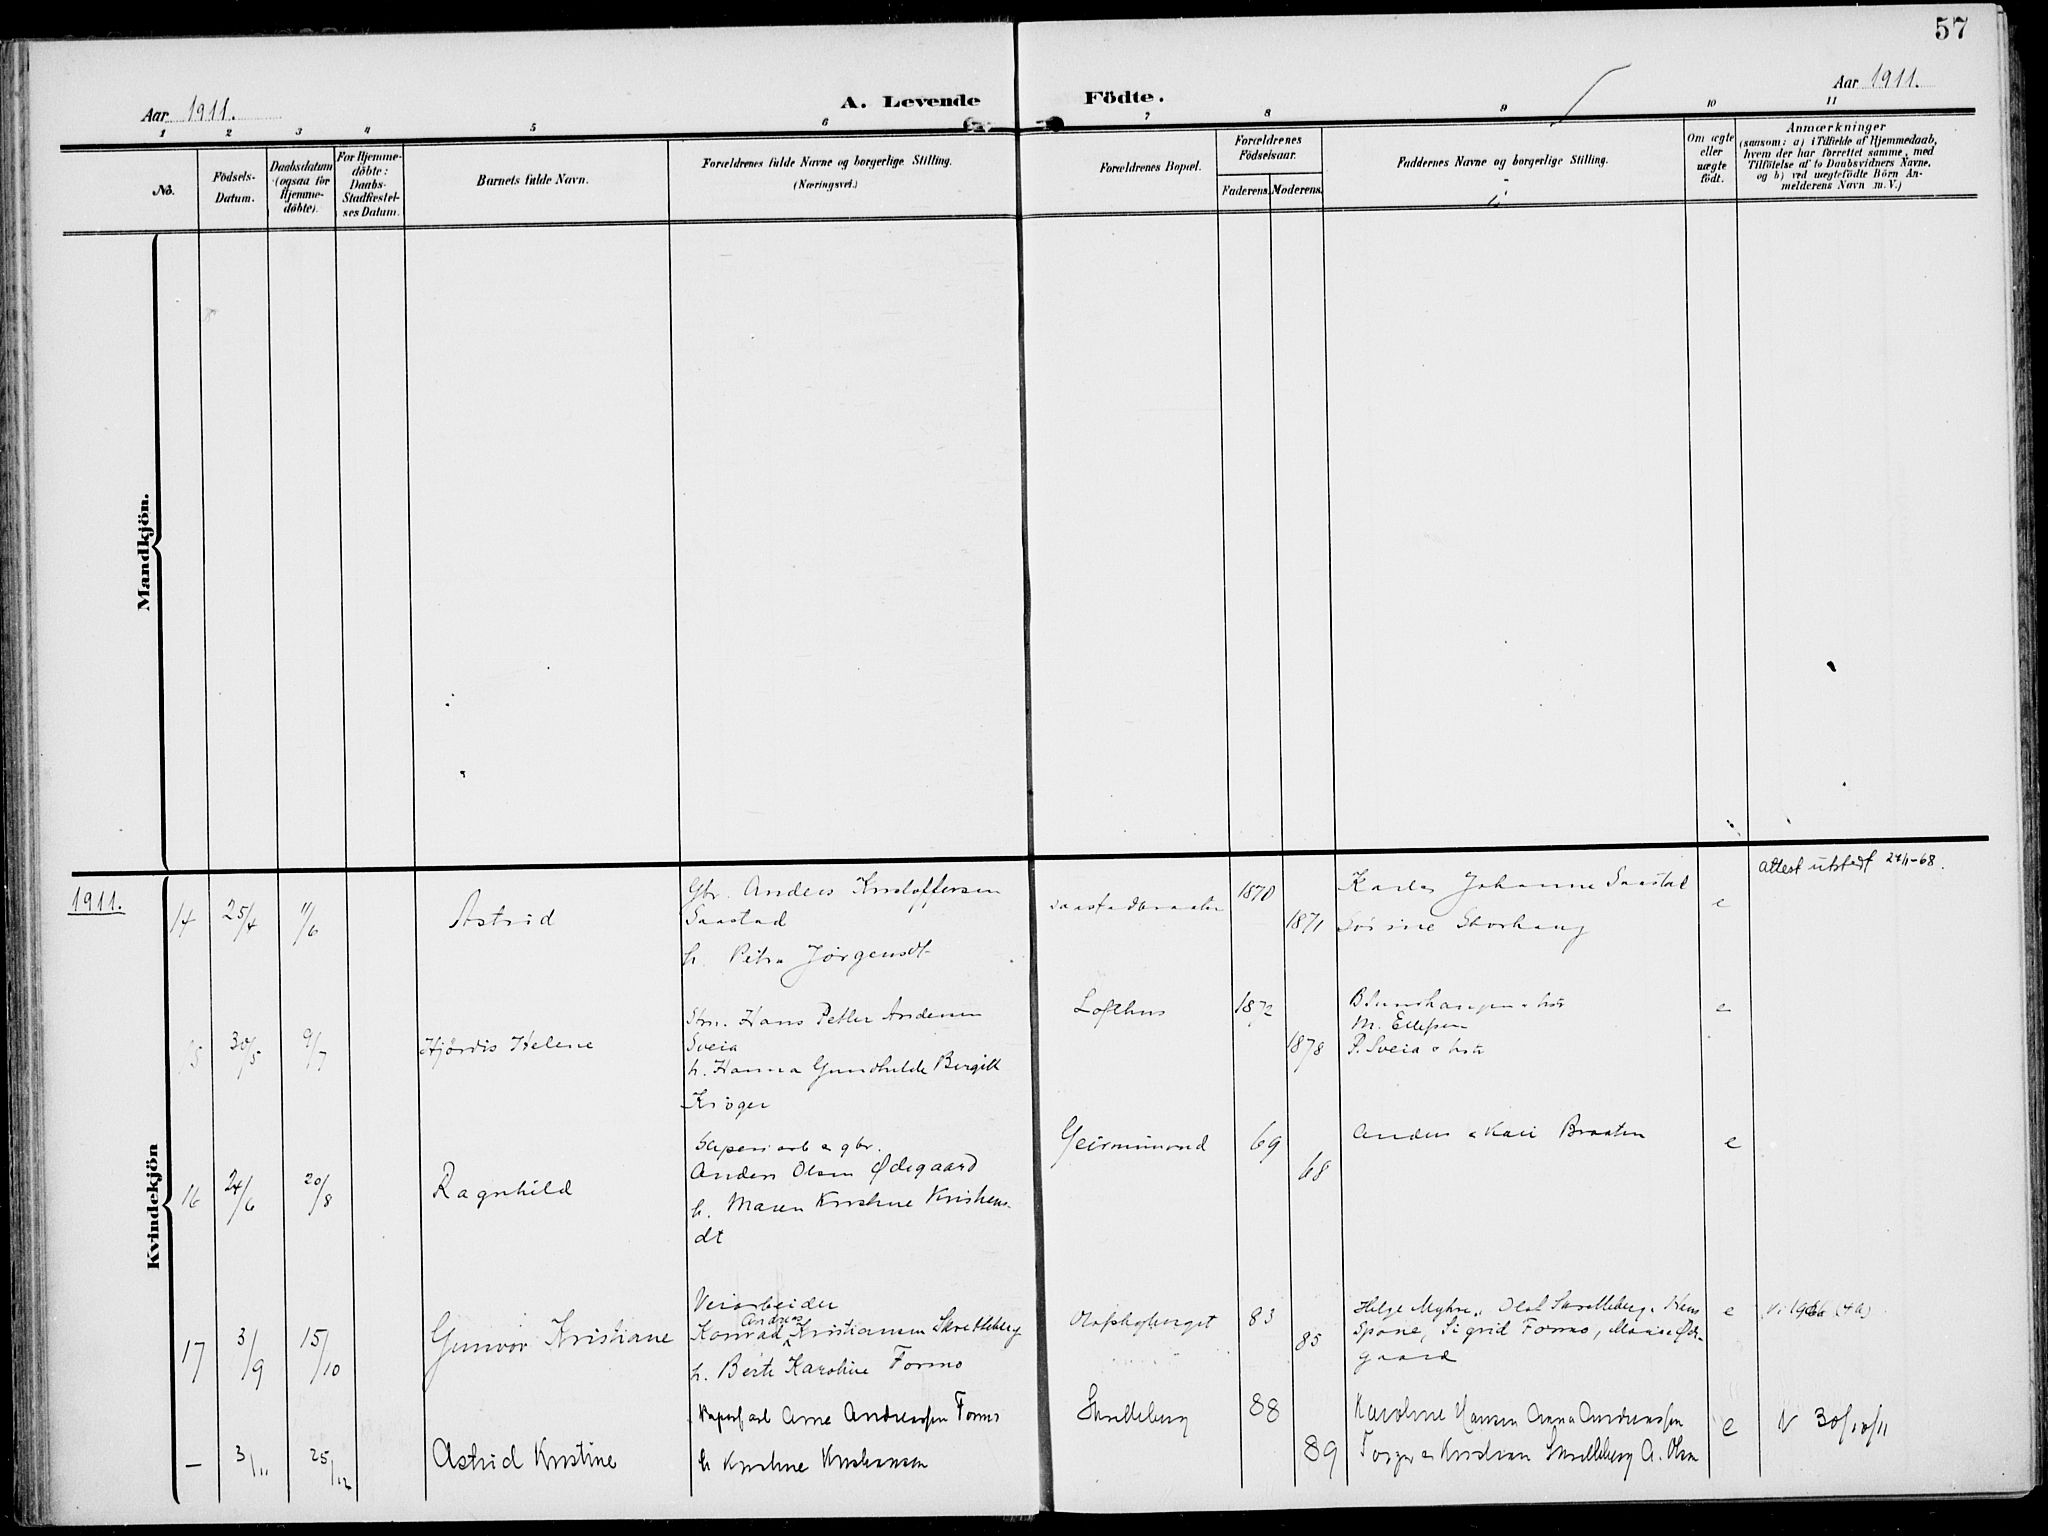 57
Aar 1911.
A. Levende
Födte.
Aar 1911.
1 2 3 4 5 6 7 8 9 10 11
No.
Födsels-
Datum.
Daabsdatum
(ogsaa for
Hjemme-
döbte).
For Hjemme-
döbte:
Daabs-
Stadfæstel-
ses Datum.
Barnets fulde Navn.
Forældrenes fulde Navne og borgerlige Stilling.
(Næringsvei.)
Forældrenes Bopæl.
Forældrenes
Födselsaar.
Faderens. Moderens.
Faddernes Navne og borgerlige Stilling.
Om ægte
eller
uægte
födt.
Anmærkninger
(saasom: a) i Tilfælde af Hjemmedaab,
hvem der har forrettet samme, med
Tilföielse af to Daabsvidners Navne,
og b) ved uægtefödte Börn An-
melderens Navn m. V.)
Mandkjön.
Kvindekjön
1911.
14 25/4 11/6 Astrid
Gbr. Anders Kristoffersen
Saastad
h. Petra Jörgensdt
1870
1871
Karl Johanne Saastad
Sörine Storhaug
e
Attest utstedt
15 30/5 9/7 Hjördis Helene
Hans Petter Andersen
Sveia
h. Hanna Gunhilde Birgitte
Kröger
Lofthus
1872
1878
M. Ellefsen
P. Sveia
e
16 24/6 20/8 Ragnhild
Anders Olsen Ødegaard
h. Maren Kristine Kristens-
dt
Geirmunond
69
68
Anders & Kari Braaten
e
17 3/9 15/10 Gunvor Kristiane
Veiarbeider
Andreas
Konrad Kristiansen Skretteberg
h. Berte Karoline Formo
83
85
Helge Myhre, Olaf Skretteberg, Hans
Spone, Sigrid Formo, Marie Øde-
gaard
e
– 3/11 25/12 Astrid Kristine
Arne Andreassen Formo
h Kristine Kristiansen
Skretteberg
88
89
Karoline Hansen Anna Andreassen
Torger & Kristian Skretteberg A. Olsen
e
V 30/10/11